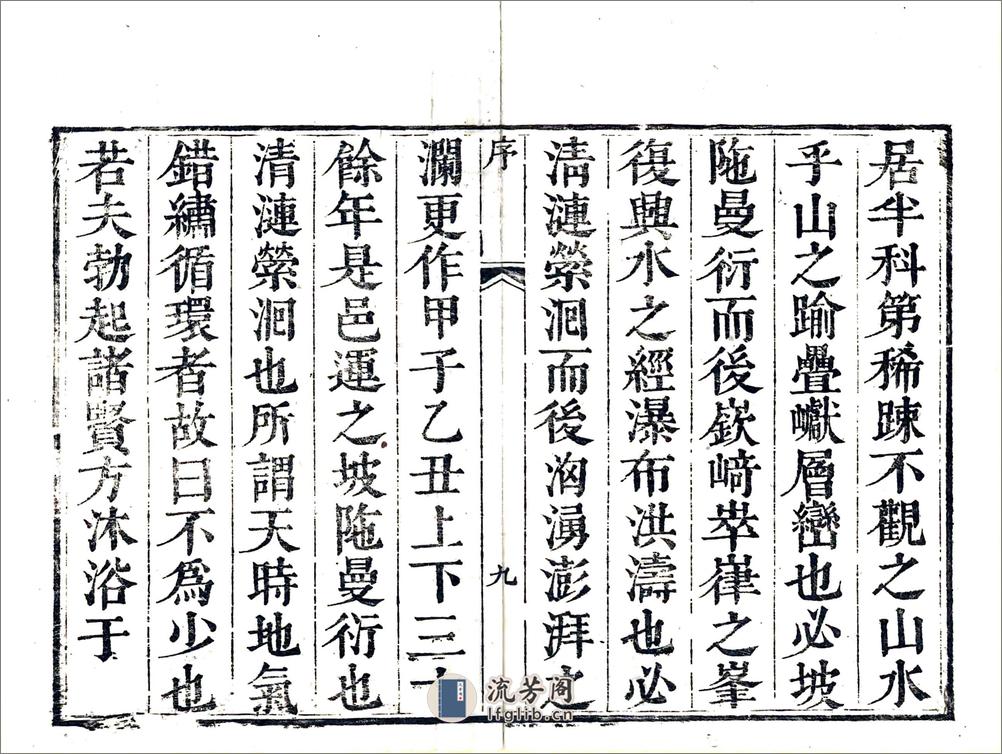 居半科第稀踈不觀之山水
乎山之踰疊巘層巒也必坡
陁曼衍而後嶔﨑崒嵂之峯
復興水之經瀑布洪濤也必
淸漣縈洄而後洶湧澎湃之
序
九
瀾更作甲子乙丑上下三十
餘年是邑運之坡陁曼衍也
清漣縈洄也所謂天時地氣
錯繡循環者故曰不爲少也
若夫勃起諸賢方沐浴于
流芳阁
lfglib.cn